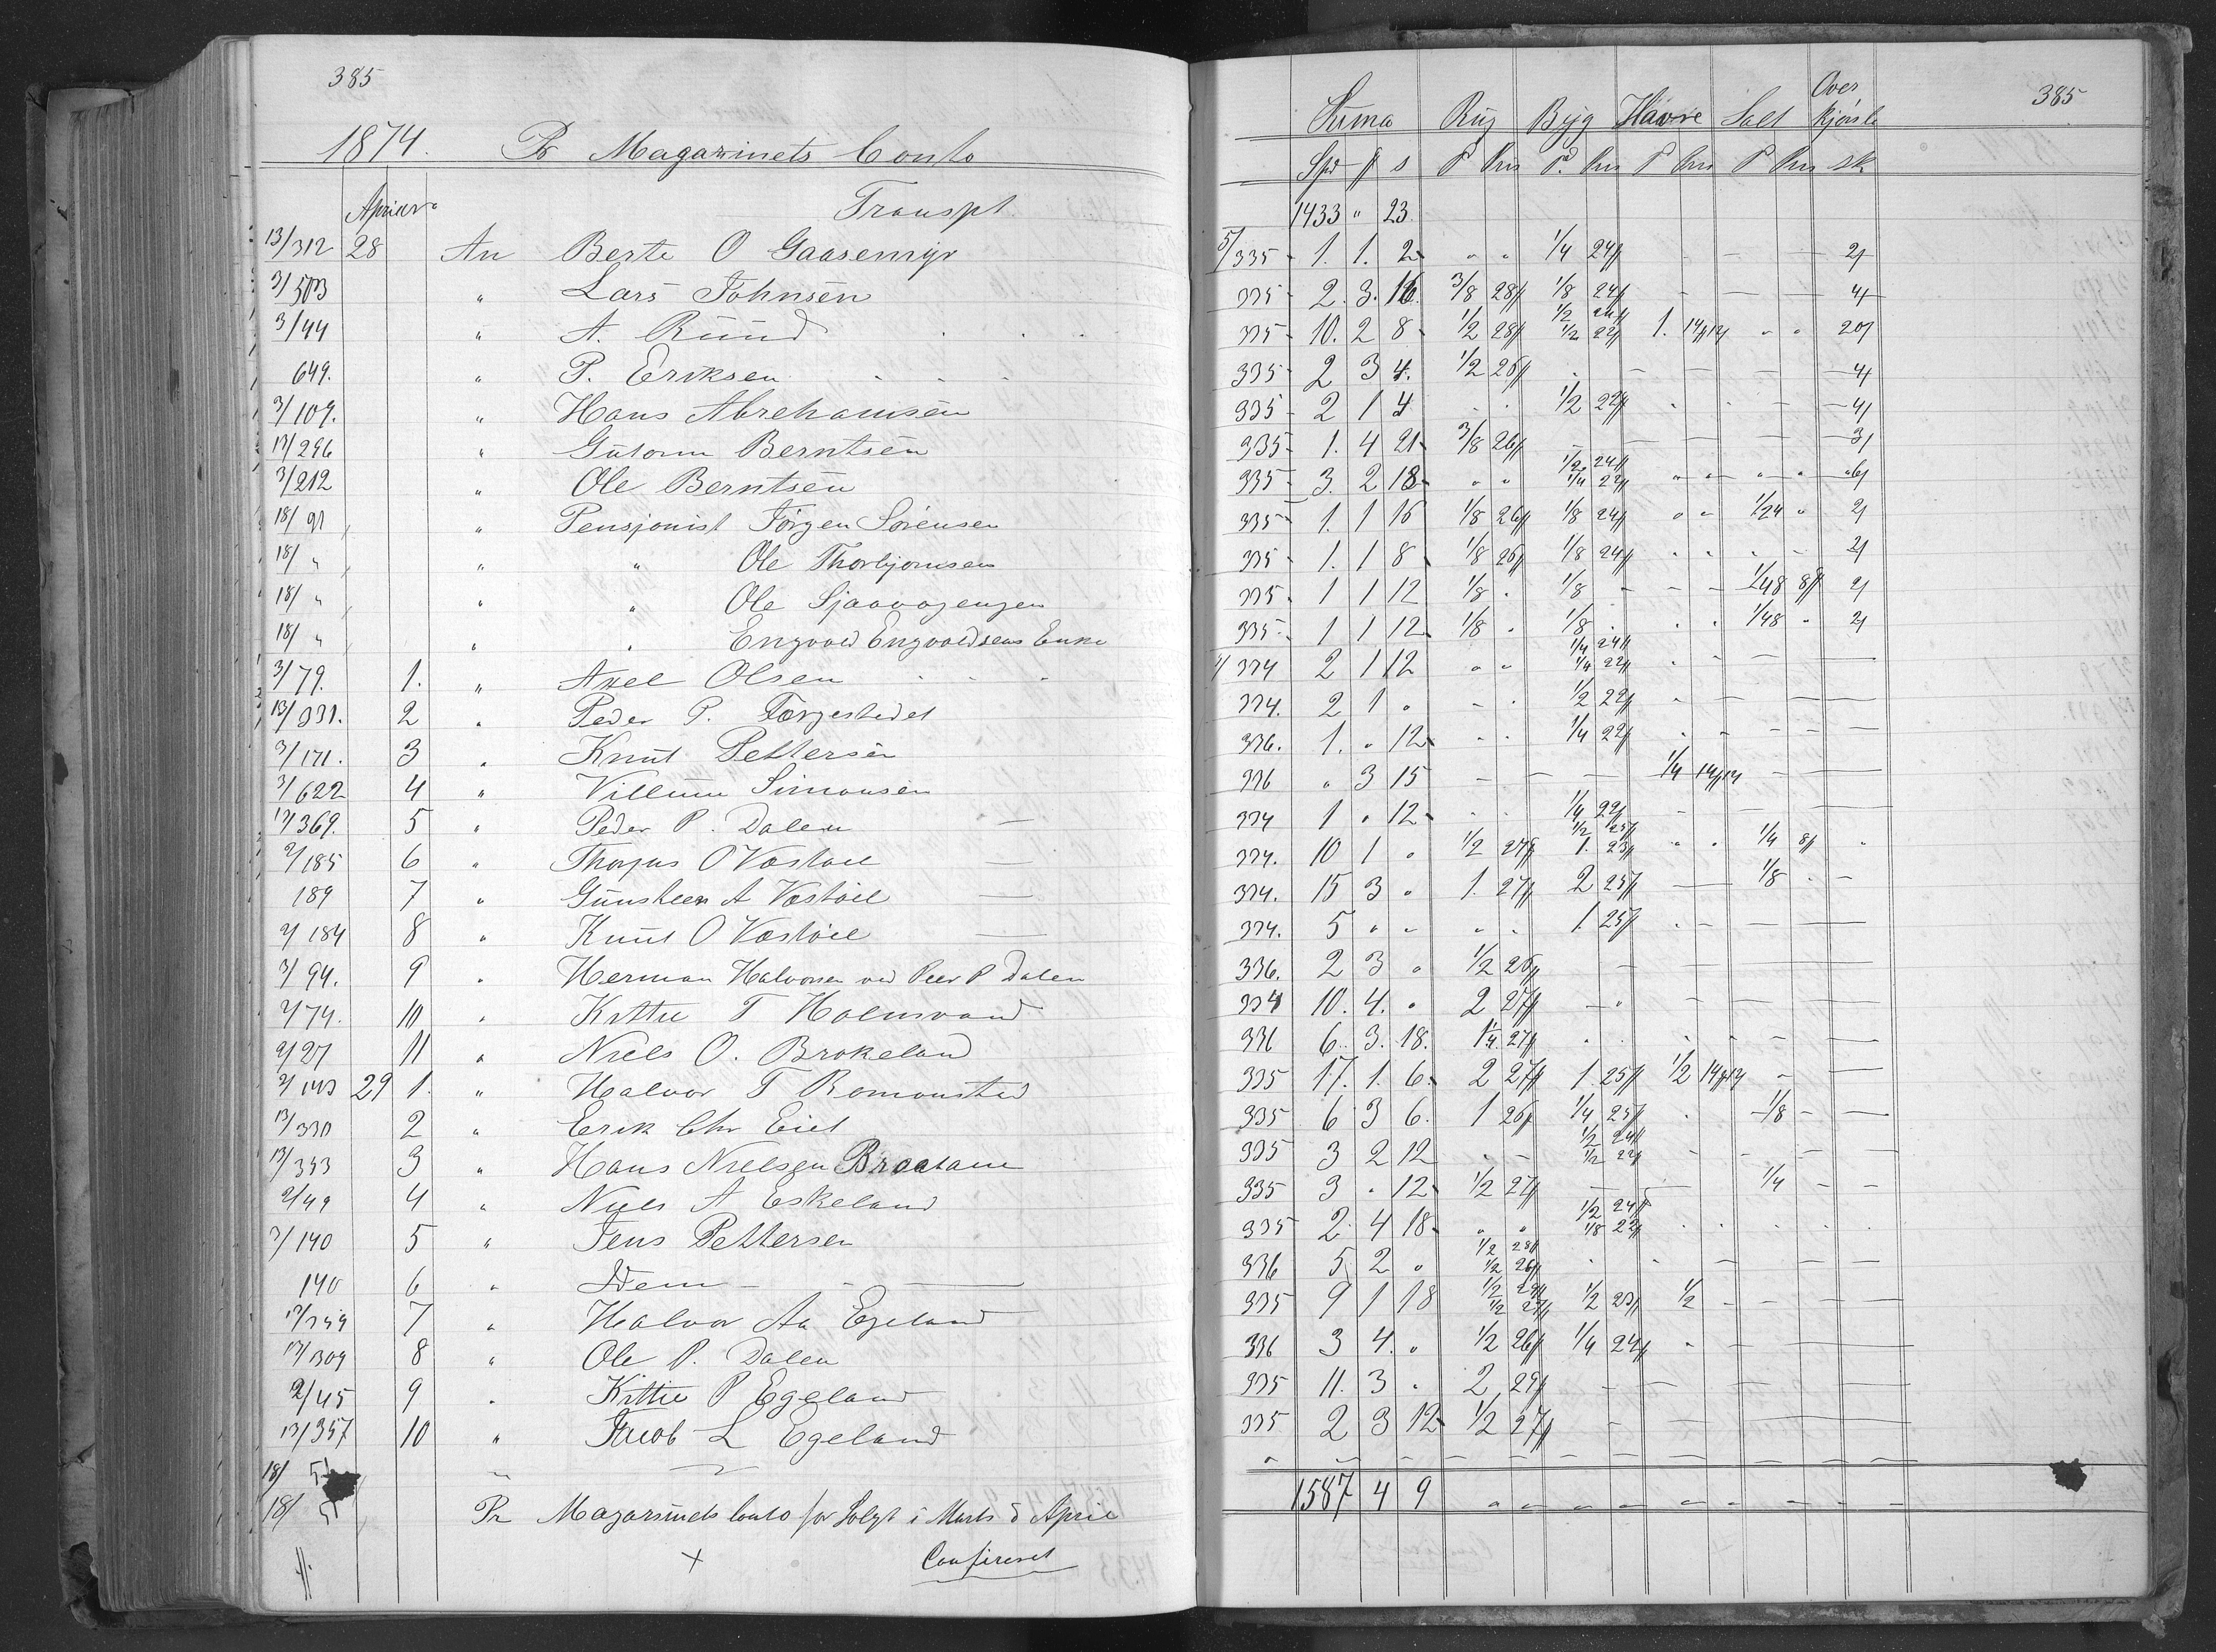 385
1874. Pr Magazinets Conto
April Transpt.
13/312 28 An Berte O Gaasemyr
3/503 " Lars Johnsen
3/44 " A. Ruud
649. " P. Eriksen
3/109. " Hans Abrehamsen
13/296 " Gutorm Berntsen
3/212 " Ole Berntsen
18/91 " Pensjonist Jörgen Sörensen
18/ " " " Ole Thorbjornsen
18/ " " " Ole
18/ " " " Engvold Engvoldsens Enke
3/79. 1. " Axel Olsen
13/331. 2 " Peder P.
3/171. 3 " Knut Pettersen
3/622 4 " Villum Simonsen
13/369. 5 " Peder P. Dalen
2/185 6 " O Vastöel
189 7 " A Vastöel
2/184 8 " Knut O Vastöel
3/94. 9 " Herman Halvorsen ved Peer P Dalen
2/74. 10 " Kittil T Holmvand
2/27 11 " Niels O. Brokeland
2/143 29 1. " Halvor T Romonsted
13/330 2 " Erik Chr Eiet
13/353 3 " Hans Nielsen
2/49 4 " Niels A Eskeland
3/140 5 " Jens Pettersen
140 6 " Idem
13/349 7 " Halvor Aa Egeland
13/309 8 " Ole P. Dalen
2/45 9 " Kittil P Egeland
13/357 10 " Jacob L Egeland
18/ 51
18/ Pr Magazinets Conto for Solgt i Marts & April
Confireret
385
Suma Rug Byg Havre Salt Over kjørsle
Spd ƒ s P Pris P. Pris P Pris P Pris sk
1433 " 23.
5/335 1. 1. 2 " " 1/4 24 2
335 2. 3. 16. 3/8 28 1/8 24 4
335 10. 2 8 1/2 28 1/2 24 1/2 22 1. 14 " " 20
335 2 3 4. 1/2 26 4
335 2 1 4 1/2 22 4
335 1. 4 21 3/8 26 3
335 3. 2 18 " " 1/2 24 1/4 22 6
335 1. 1 16 1/8 26 1/8 24 " " 1/24 " 2
335 1. 1 8 1/8 26 1/8 24 2
335 1 1 12 1/8 1/8 1/48 8 2
335 1 1 12 1/8 1/8 1/48 2
334 2 1 12 " " 1/4 24 1/4 22
334. 2 1 " 1/2 22
336. 1. " 12 1/4 22
336 " 3 15 1/4 14
334 1 " 12 1/4 22
334. 10 1 " 1/2 27 1/2 25 1. 23 1/4 8
334. 15 3 " 1. 27 2 25 1/8
334. 5 " " " " 1. 25
336. 2 3 " 1/2 26
334 10. 4. " 2 27
336 6. 3. 18. 1 1/4 27
335 17. 1. 6. 2 27 1. 25 1/2 14
335 6 3 6. 1 26 1/4 25 1/8
335 3 2 12 1/2 24 1/2 22
335 3 " 12 1/2 27 1/4
335 2 4 18 " " 1/2 24 1/8 22
336 5 2 " 1/2 28 1/2 26
335 9 1 18 1/2 29 1/2 27 1/2 23 1/2
336 3 4. " 1/2 26 1/4 24
335 11. 3 " 2 29
335 2 3 12 1/2 27
1587 4 9